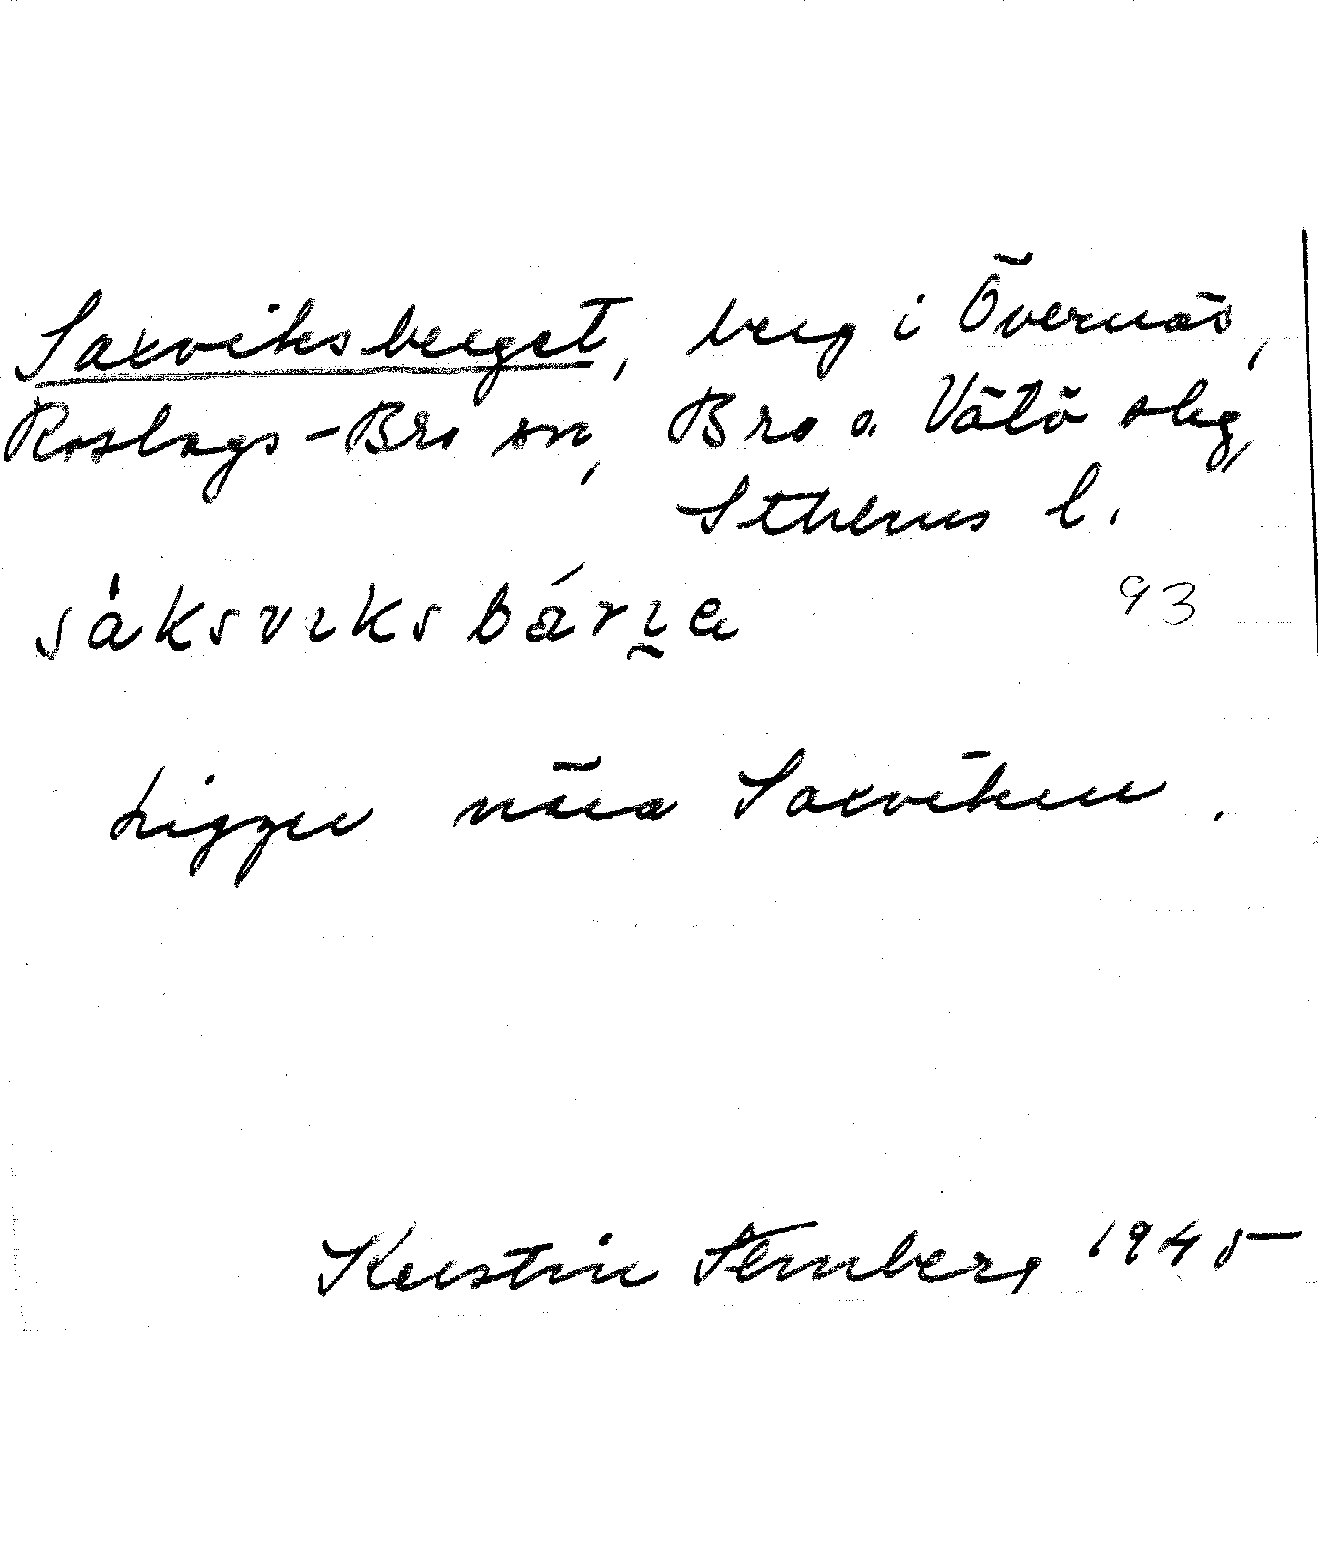 Saxviksberget, berg i Övernäs,
Roslags-Bro sn, Bro o. Vätö slg,
Sthlms l.
93
Ligger nära Saxviken.
Kerstin Sternberg 1945